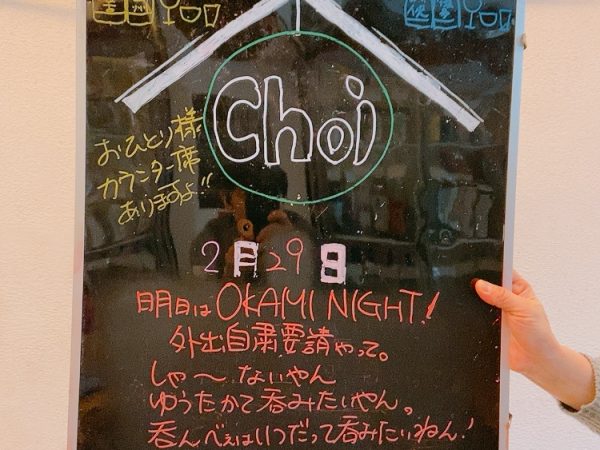 Choi
おひとり様
カウンター席
ありますよ!!
2月29日
明日は OKAMI NIGHT!
外出自粛要請やって。
しゃ〜ないやん
ゆうたかて呑みたいやん。
呑んべぇはいつだって呑みたいねん!